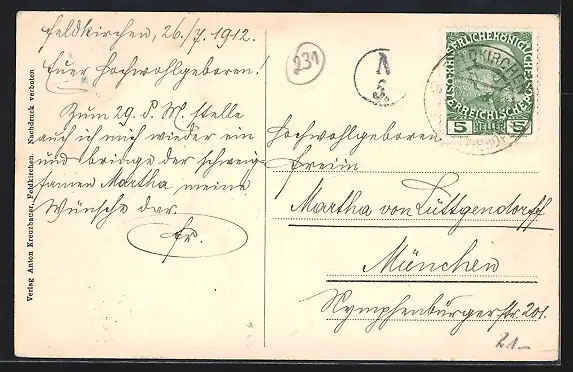 Feldkirchen, 26./7. 1912.
Euer Hochwohlgeboren!
Zum 29. d. M. stelle
auch ich mich wieder ein
und bringe der schweig-
samen Martha meine
Wünsche dar.
Fr.
Verlag Anton Kreuzbauer, Feldkirchen. Nachdruck verboten
231
A
S.
KAISERLICHE KÖNIGLICHE
ÖSTERREICHISCHE POST
5 HELLER 5
Hochwohlgeboren
Freiin
Martha von Lüttgendorff
München
Nymphenburgerstr. 201.
21.-